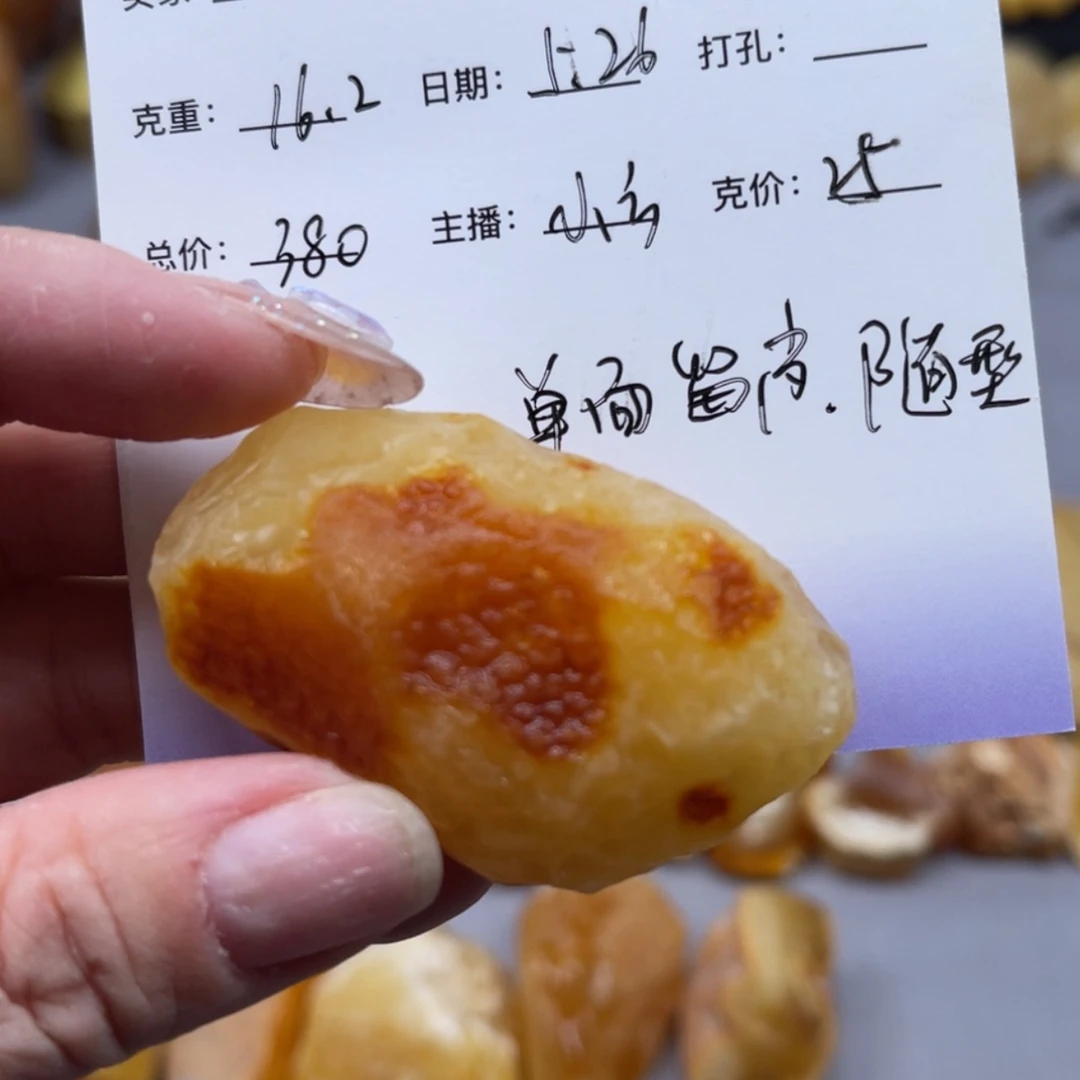 克重：16.2 日期：5.26 打孔：
总价：380 主播： 克价：25
单面留皮.随型